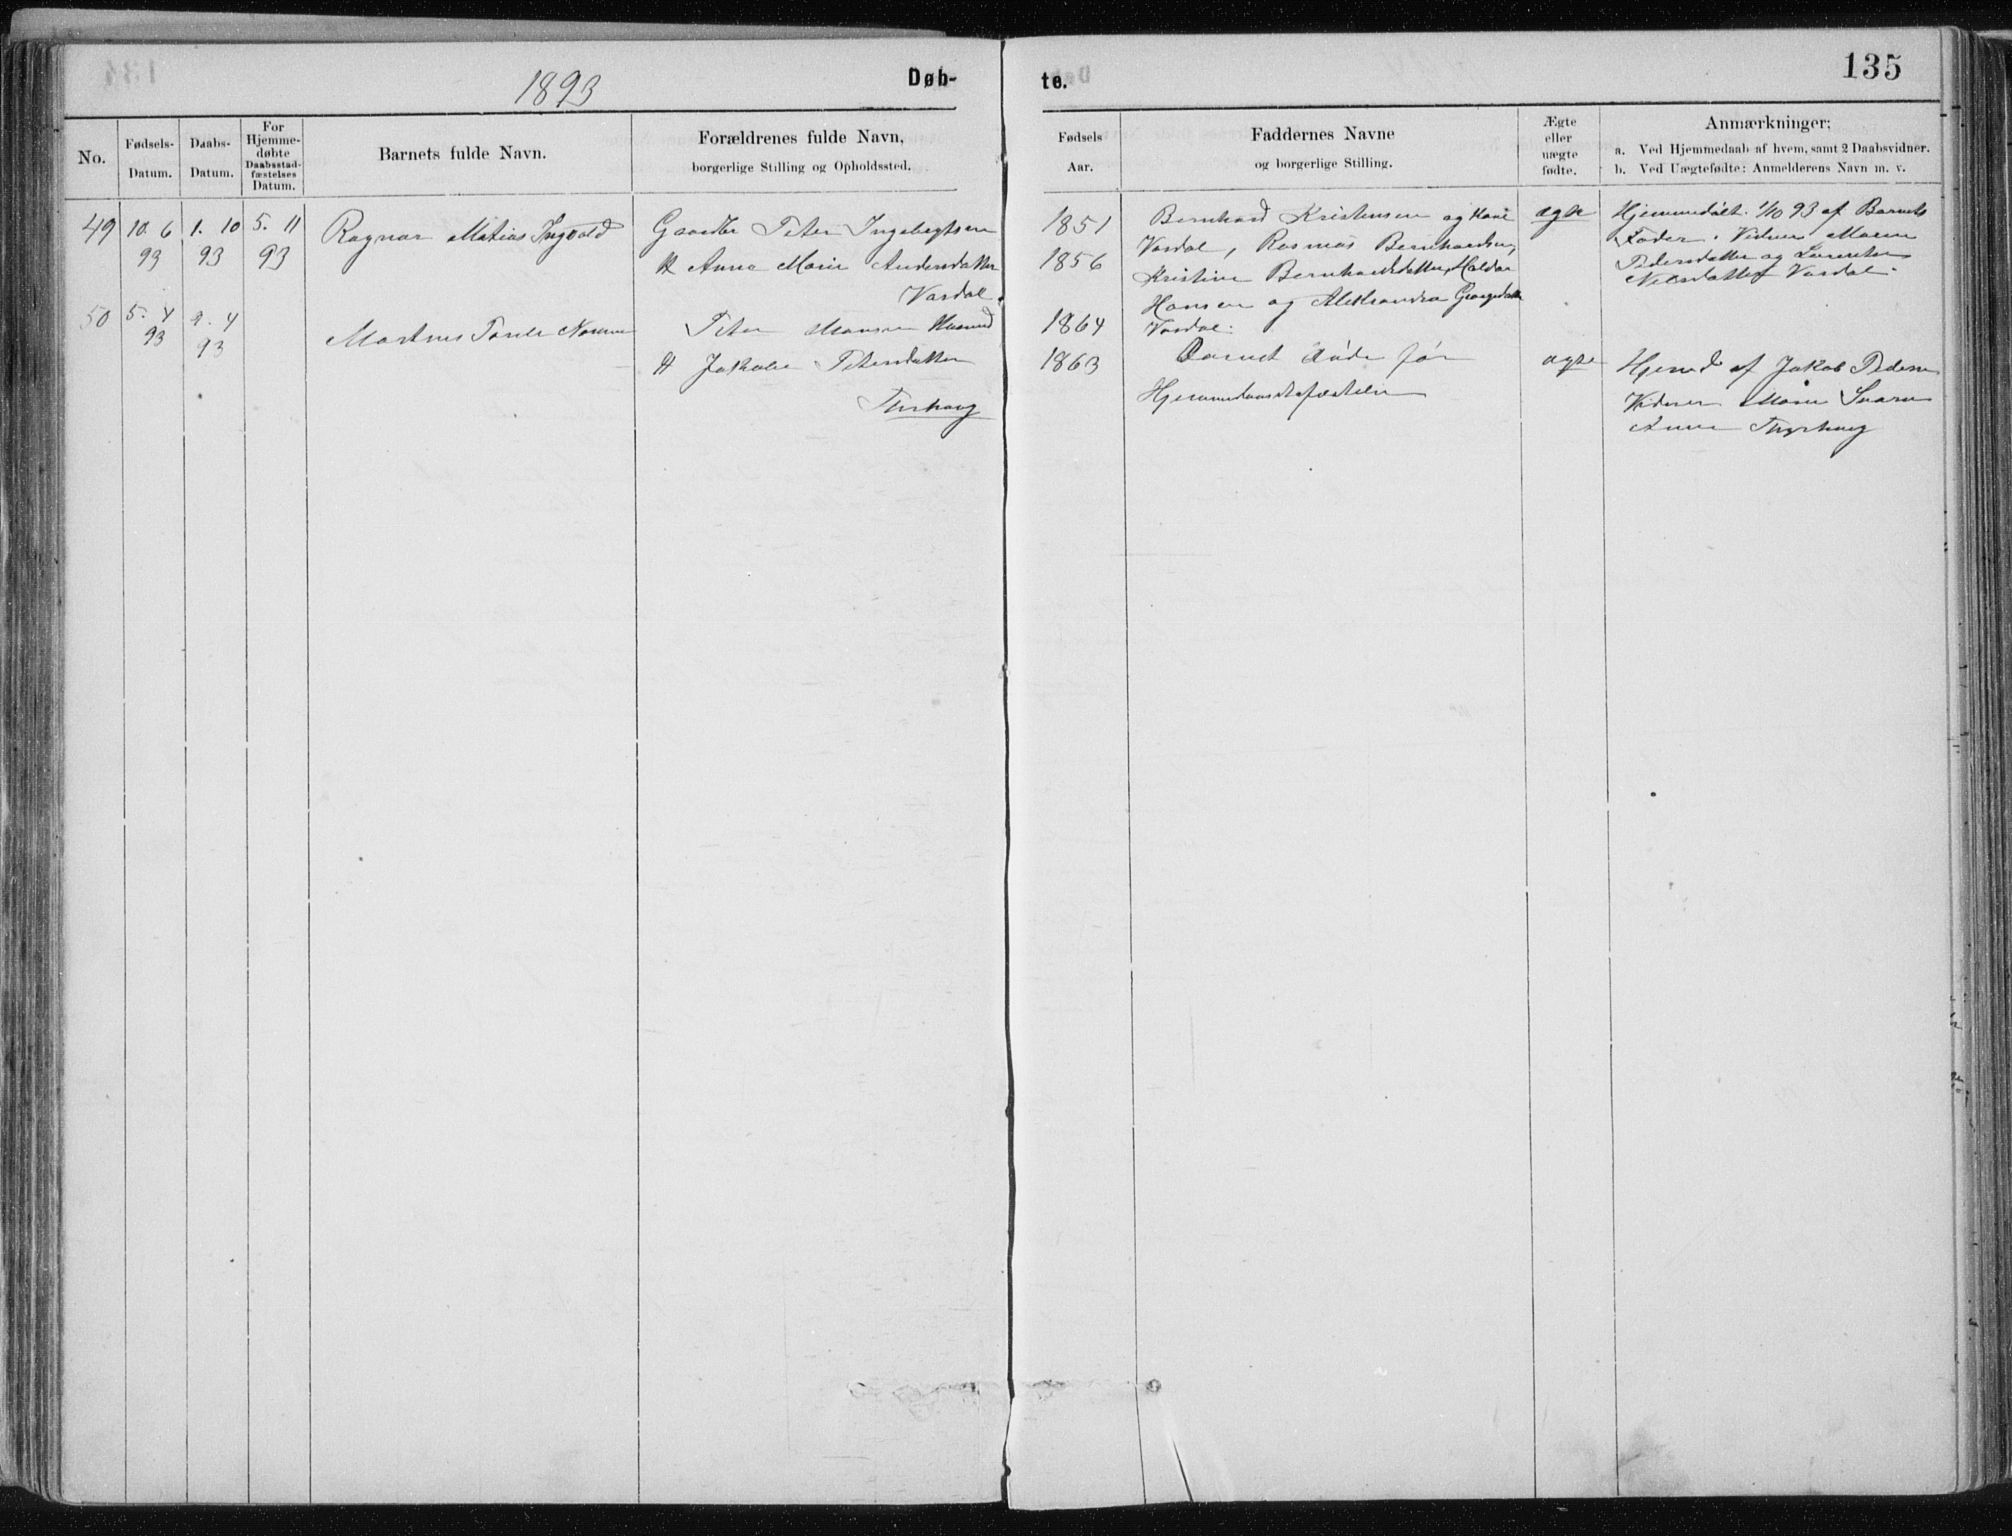 1893
Døb-
te.
135
No.
Fødsels-
Datum.
Daabs-
Datum.
For
Hjemme-
døbte
Daabsstad-
fæstelses
Datum.
Barnets fulde Navn.
Forældrenes fulde Navn,
borgerlige Stilling og Opholdssted.
Fødsels
Aar.
Faddernes Navne
og borgerlige Stilling.
Ægte
eller
uægte
fødte.
Anmærkninger:
a. Ved Hjemmedaab af hvem, samt 2 Daabsvidner.
b. Ved Uægtefødte: Anmelderens Navn m. v.
49
10. 6
93
1. 10
93
5. 11
93
Ragnar Matias Ingvald
Gaardbr Peter Ingebrigtsen
H Anna Marie Andersdatter
Vasdal.
1851
1856
Bernhard Kristensen og Kone
Vasdal, Rasmus Bernhardsen,
Kristine Bernhardsdatter, Haldor
Hansen og Aleksandra Georgsdatter
Vasdal.
ægte
Hjemmedøbt 1/10 93 af Barnets
Fader. Vidner Maren
Pedersdatter og
Nilsdatter Vasdal.
50
5. 4
93
9. 4
93
Martinus
Peter Hansen
H Jakobie Petersdatter
1864
1863
Barnet døde før
Hjemmedaabstadfæstelsen
ægte
Hjemd af Jakob Pedersen
Vidner